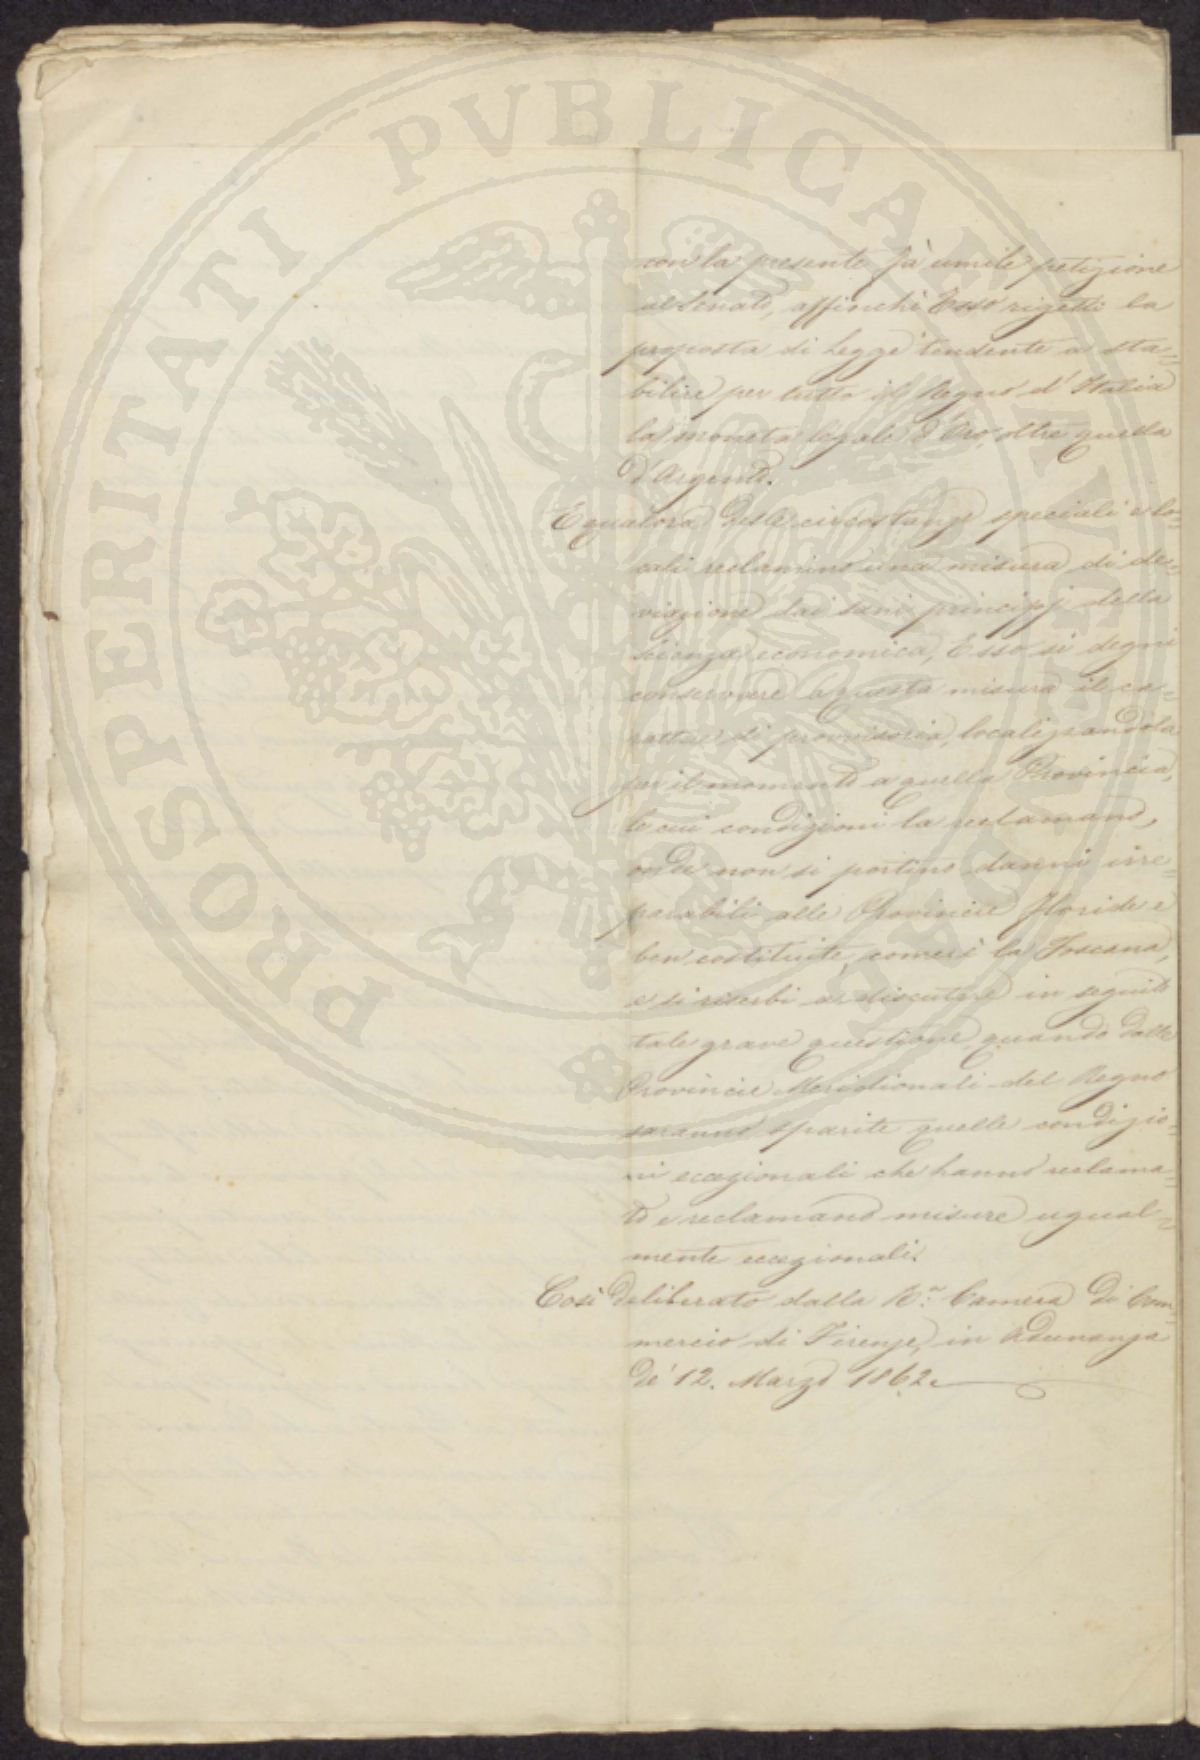 PROSPERITATI PVBLICAE AVGENDAE
con la presente fà umile petizione
al Senato, affinchè Esso rigetti la
proposta di Legge tendente a sta=
bilire per tutto il Regno d'Italia
la moneta legale d'Oro, oltre quella
d'Argento.
E qualora delle circostanze speciali e lo=
cali reclamino una misura di de=
viazione dai sani principj della
scienza economica, Esso si degni
conservare a questa misura il ca=
rattere di provvisoria, localizzandola
per il momento a quella Provincia,
le cui condizioni la reclamano,
onde non si portino danni irre=
parabili alle Provincie floride e
ben costituite, com'è la Toscana,
e si riserbi a discutere in seguito
tale grave questione, quando dalle
Provincie Meridionali del Regno
saranno sparite quelle condizio=
ni eccezionali che hanno reclama=
to e reclamano misure ugual=
mente eccezionali.
Così deliberato dalla R.a Camera di Com=
mercio di Firenze, in Adunanza
de' 12. Marzo 1862.